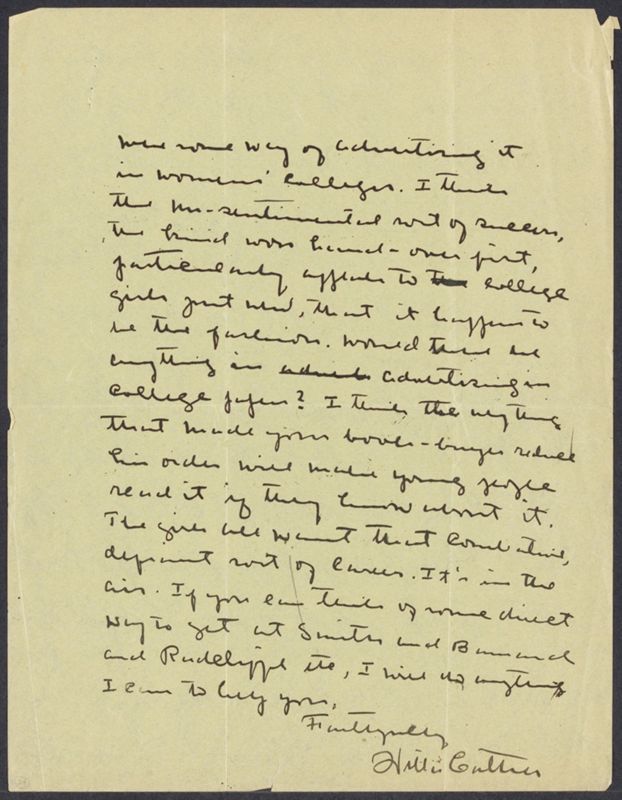 were some way of advertising it
in womens' colleges. I think
the un-sentimental sort of success,
the kind won hand-over fist,
particularly appeals to the college
girls just now, that it happens to
be the fashion. Would there be
anything in advertising in
college papers? I think the very thing
that made your book-buyer reduce
his order will make young people
read it if they know about it.
The girls all want that combative,
defiant sort of career. It's in the
air. If you can think of some direct
way to get at Smith and Barnard
and Radcliffe etc, I will do anything
I can to help you.
Faithfully
Willa Cather